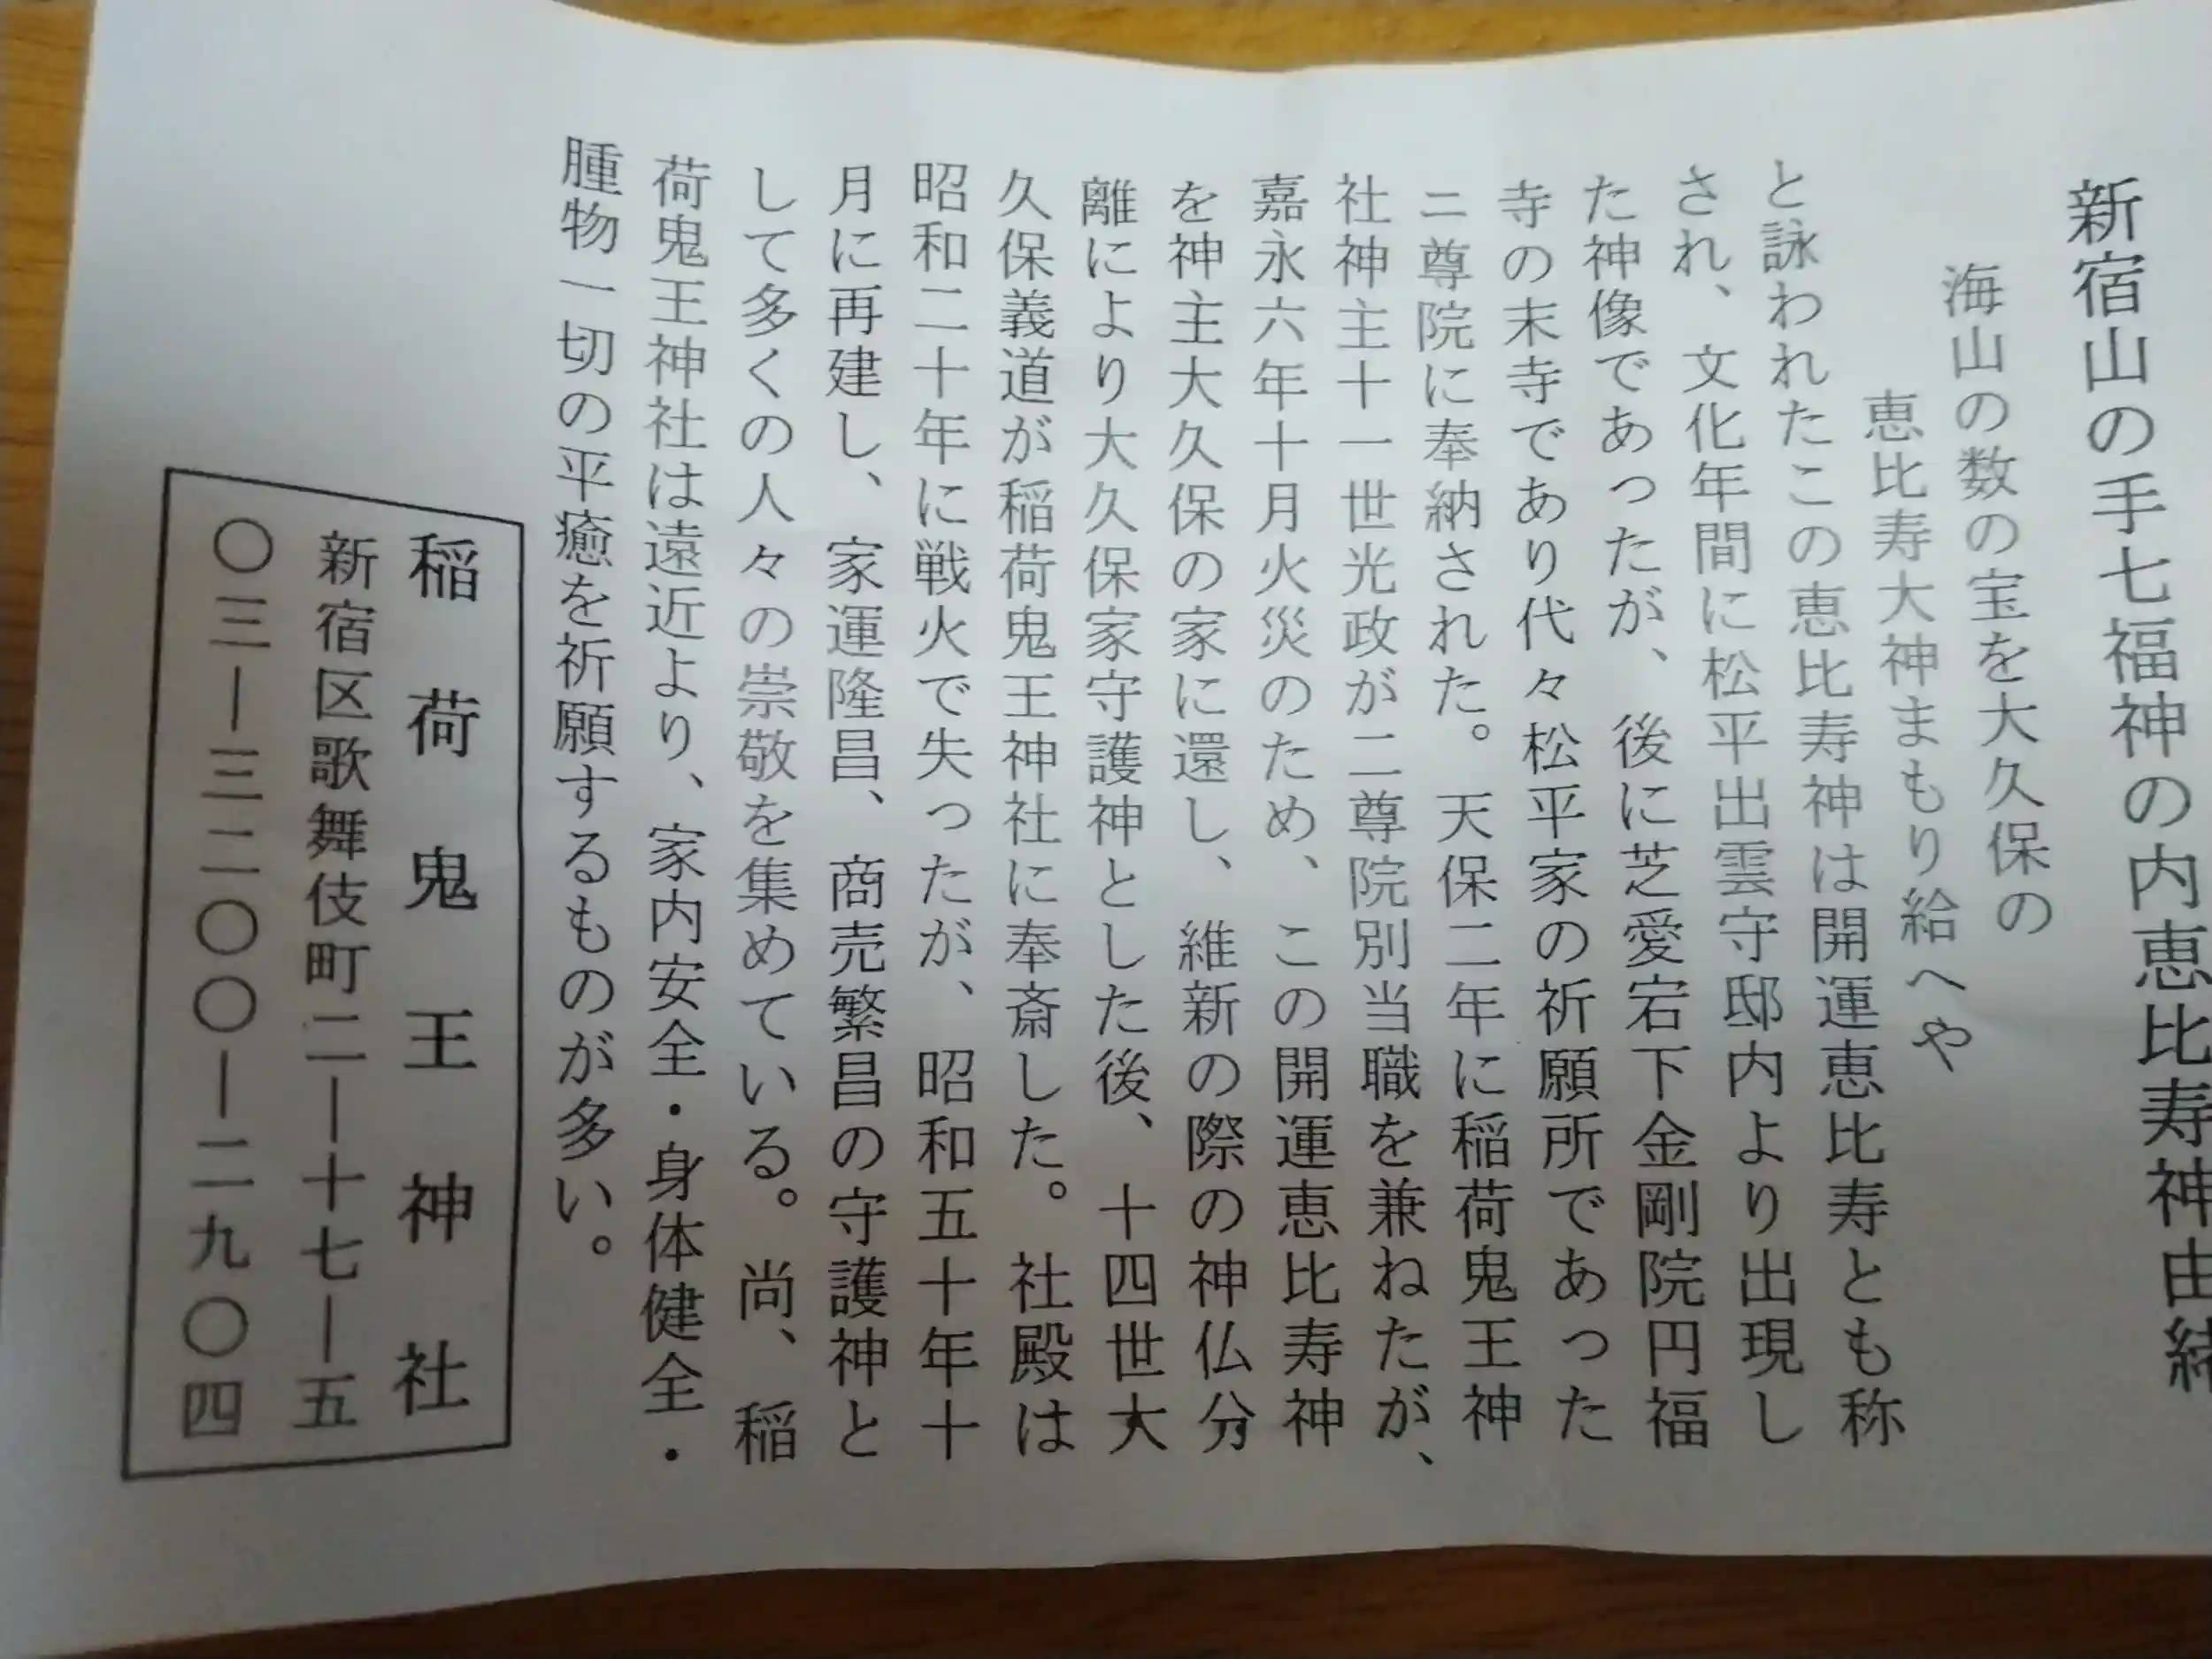 新宿山の手七福神の内恵比寿神由緒
海山の数の宝を大久保の
恵比寿大神まもり給へや
と詠われたこの恵比寿神は開運恵比寿とも称
され、文化年間に松平出雲守邸内より出現し
た神像であったが、後に芝愛宕下金剛院円福
寺の末寺であり代々松平家の祈願所であった
ニ尊院に奉納された。天保二年に稲荷鬼王神
社神主十一世光政が二尊院別当職を兼ねたが、
嘉永六年十月火災のため、この開運恵比寿神
を神主大久保の家に還し、維新の際の神仏分
離により大久保家守護神とした後、十四世大
久保義道が稲荷鬼王神社に奉斎した。社殿は
昭和二十年に戦火で失ったが、昭和五十年十
月に再建し、家運隆昌、商売繁昌の守護神と
して多くの人々の崇敬を集めている。尚、稲
荷鬼王神社は遠近より、家内安全・身体健全・
腫物一切の平癒を祈願するものが多い。
稲荷鬼王神社
新宿区歌舞伎町二ー十七ー五
〇三ー三二〇〇ー二九〇四